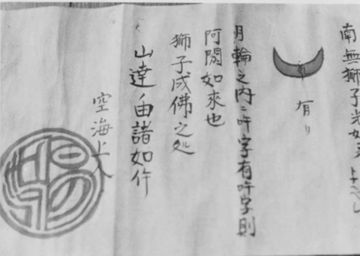 南無獅子
有リ
月輪之内ニ吽字有吽字則
阿閦如來也
獅子成佛之处
山達由諸如件
空海上人